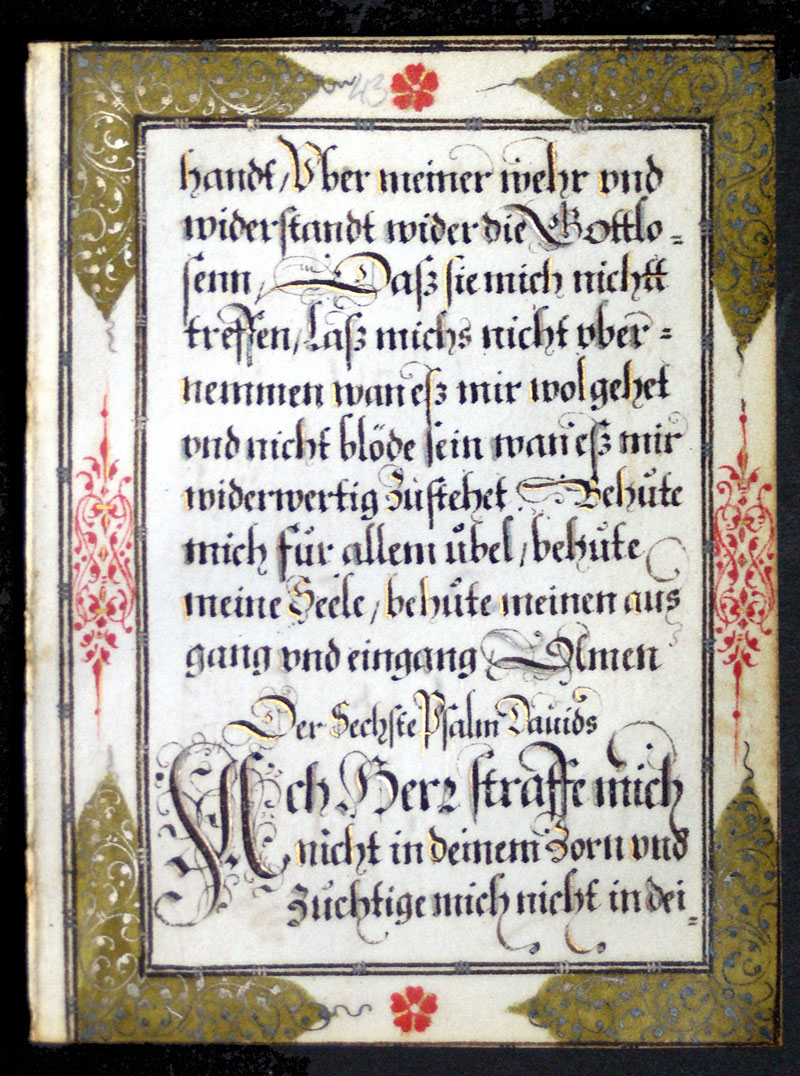 43
handt, Vber meiner wehr vnd
widerstandt wider die Gottlo=
senn, Dasz sie mich nichtt
treffen, Lasz michs nicht vber=
nemmen wan esz mir wol gehet
vnd nicht blöde sein wan esz mir
widerwertig Zustehet. Behůte
mich für allem ůbel, behůte
meine Seele, behůte meinen aus
gang vnd eingang Amen
Der Sechste Psalm Dauids
Ach Herr straffe mich
nicht in deinem Zorn vnd
Zůchtige mich nicht in dei=